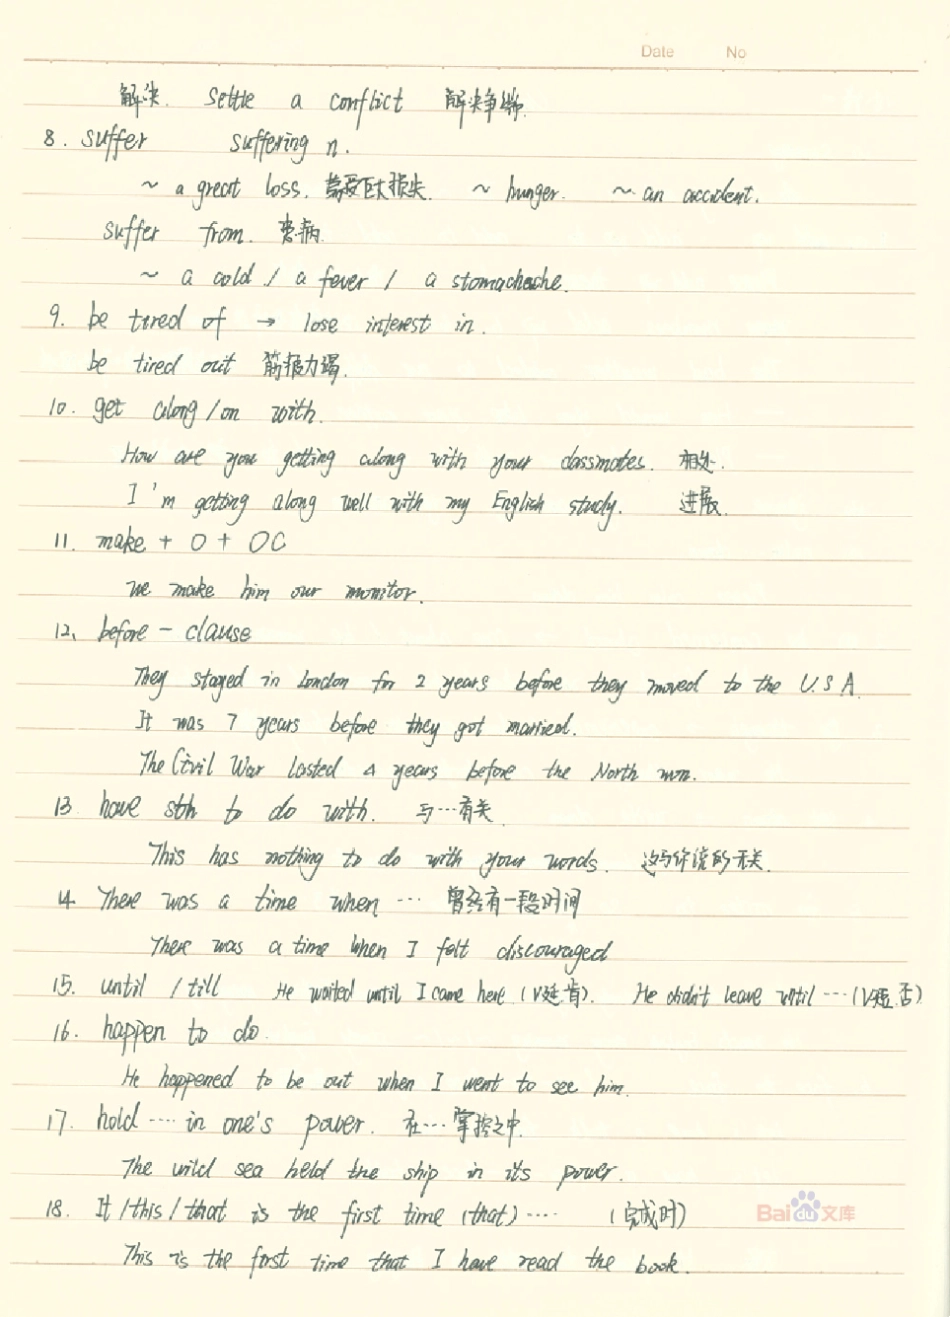 Date No
解决. Settle a conflict 解决争端.
8. suffer suffering n.
~ a great loss. 蒙受巨大损失. ~ hunger. ~ an accident.
suffer from. 患病.
~ a cold / a fever / a stomachache.
9. be tired of → lose interest in.
be tired out 筋疲力竭.
10. get along/on with.
How are you getting along with your classmates. 相处.
I'm getting along well with my English study. 进展.
11. make + O + OC
We make him our monitor.
12、before - clause
They stayed in London for 2 years before they moved to the U.S A.
It was 7 years before they got married.
The Civil War lasted 4 years before the North won.
13 have sth to do with. 与…有关
This has nothing to do with your words. 这与你说的无关.
14 There was a time when … 曾经有一段时间
There was a time when I felt discouraged
15. until / till He waited until I came here (V延肯). He didn't leave until …(V短.否)
16. happen to do.
He happened to be out when I went to see him.
17. hold …… in one's power. 在…掌控之中.
The wild sea held the ship in its power.
18. It / this / that is the first time (that) …… (完成时)
Baidu文库
This is the first time that I have read the book.